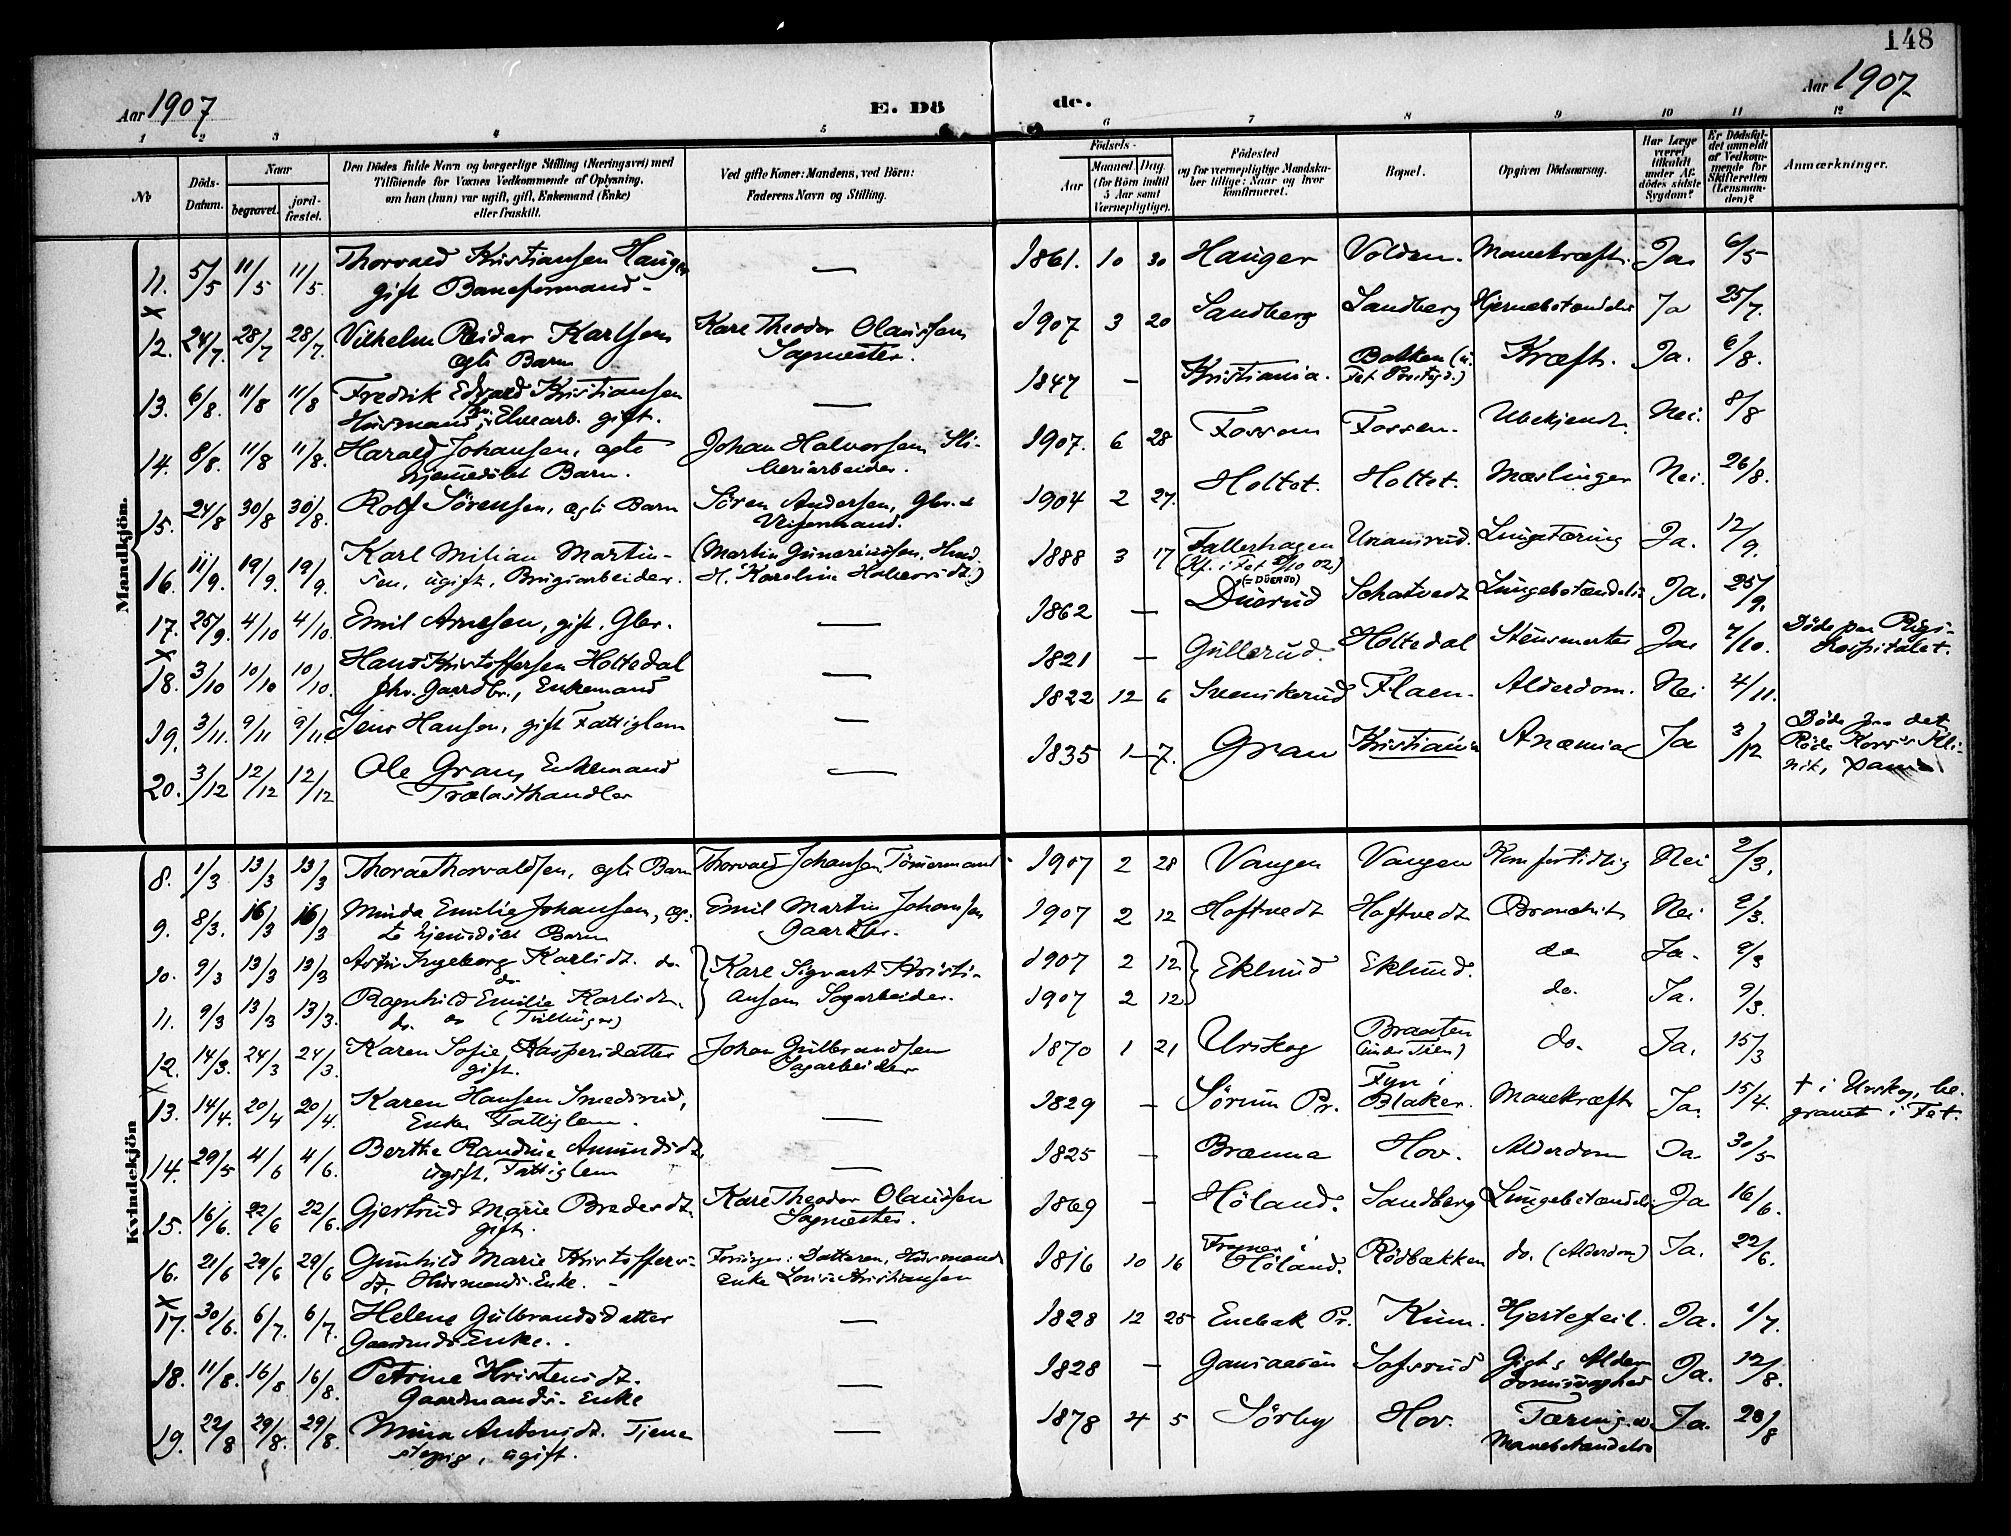 148
Aar 1907
E. Dö
de.
Aar 1907
1 2 3 4 5 6 7 8 9 10 11 12
No
Döds-Datum.
Naar
begravet.
jordfæstet.
Den Dödes fulde Navn og borgerlige Stilling (Næringsvei) med
Tilföiende for Voxnes Vedkommende af Oplysning,
om han (hun) var ugift, gift, Enkemand (Enke)
eller fraskilt.
Ved gifte Koner: Mandens, ved Börn:
Faderens Navn og Stilling.
Födsels-
Aar
Maaned Dag
(for Börn indtil
5 Aar samt
Værnepligtige).
Födested
og for værnepligtige Mandskaber tillige: Naar og hvor
konfirmeret.
Bopæl.
Opgiven Dödsaarsag.
Har Læge været tilkaldt under Afdödes sidste Sygdom?
Er Dödsfaldet anmeldt af Vedkommende for Skifteretten (Lensmanden)?
Anmærkninger.
Mandkjön.
11. 5/5 11/5 11/5. Thorvald Kristiansen Hauger
gift Baneformand - — 1861. 10 30 Hauger Volden. Mavekræft. Ja 6/5
12. 24/7. 28/7 28/7. Vilhelm Reidar Karlsen
egte Barn Karl Theodor Olaussen
Sagmester. 1907 3 20 Sandberg Sandberg Hjernebetændelse Ja 25/7.
13. 6/8. 11/8 11/8 Fredrik Edvard Kristiansen
Husmand, Elvearb. gift. — 1847 — Kristiania. Bakken (i
Fet Prestegd.) Kræft. Ja. 6/8.
14. 8/8. 11/8 11/8. Harald Johansen, egte
hjemmedöbt Barn. Johan Halvorsen Sliberiarbeider. 1907. 6 28 Fossum Fossen. Ubekjendt. Nei. 8/8
15. 24/8 30/8 30/8. Rolf Sörensen, egte Barn Sören Andersen, Gbr. &
Veiformand. 1904 2 27. Holtet. Holtet. Mæslinger Nei. 26/8.
16. 11/9. 19/9. 19/9. Karl Milian Martinsen, ugift, Brugsarbeider. (Martin Gunariussen, Hmd.
H. Karolin Halvorsdt.) 1888 3 17 Fallerhagen
(Kf. i Fet 5/10 02) Lungetæring Ja. 12/9.
17. 25/9. 4/10 4/10. Emil Arnesen, gift, Gbr. — 1862 — (= DUERUD)
Duerud Lungebetændelse Ja. 25/9. Döde paa Rigshospitalet.
18. 3/10 10/10 10/10. Hans Kristoffersen Holtedal
fhv. Gaardbr., Enkemand — 1821 — Gullerud. Holtedal Stensmerter Ja 7/10.
19. 3/11. 9/11 9/11. Jens Hansen, gift Fattiglem — 1822 12 6 Svenskerud Flaen. Alderdom. Nei 4/11.
20. 3/12 12/12 12/12 Ole Gran, Enkemand
Trælasthandler — 1835 1 7. Gran Kristiania Anæmia Ja 3/12 Döde paa det
Röde Kors's Klinik,
Kvindekjön
8. 1/3 13/3 13/3 Thora Thorvaldsen, egte Barn Thorvald Johansen Tömmermand 1907 2 28 Vangen Vangen Kom fortidlig Nei 2/3.
9. 8/3. 16/3 16/3 Minda Emilie Johansen, egte hjemmedöbt Barn Emil Martin Johansen
Gaardbr. 1907 2 12 Hoftvedt Hoftvedt Bronchit Nei 9/3.
10. 9/3 13/3 13/3 Astri Ingeborg Karlsdt. do.
do Karl Sigvart Kristiansen Sagarbeider. 1907 2 12 Eklund Eklund. do Ja. 9/3
11. 9/3 13/3 13/3. Ragnhild Emilie Karlsdt.
do. do (Tvillinger) 1907 2 12 do. Ja. 9/3.
12. 14/3. 24/3 24/3. Karen Sofie Kaspersdatter
gift. Johan Gulbrandsen
Sagarbeider 1870 1 21 Urskog Braaten
(under Tien) do. Ja. 15/3
13. 14/4. 20/4 20/4. Karen Hansen Smedsrud,
Enke Fattiglem. — 1829 — Sörum Pr. Fyn i
Blaker. Mavekræft Ja. 15/4. † i Urskog, begravet i Fet.
14. 29/5 4/6 4/6. Berthe Randine Amundsdt.
ugift, Fattiglem — 1825 — Brænna Hov. Alderdom Ja. 30/5
15. 16/6. 22/6 22/6. Gjertrud Marie Bredesdt.
gift. Karl Theodor Olaussen
Sagmester. 1869 — Höland. Sandberg Lungebetændelse Ja 16/6.
16. 21/6 29/6 29/6 Gunhild Marie Kristoffersdt, Husmands Enke. Forsörger: Datteren, Husmands
enke Lovise Kristiansen 1816 10 16 i
Höland. Rödbækken do. (Alderdom) Ja. 22/6.
17. 30/6. 6/7. 6/7. Helene Gulbrandsdatter
Gaardmds Enke. — 1828 12 25 Enebak Pr. Kum. Hjertefeil. Ja. 1/7.
18. 11/8. 16/8 16/8. Petrine Kristensdt.
Gaardmands Enke — 1828 — Gansaasen Gigt, Alderdomssvaghed Ja. 12/8.
19. 22/8 29/8. 29/8. Mina Antonsdt. Tjenestepig, ugift. — 1878 4 5 Sörby Hov. Tæring &
Mavebetændelse Ja. 28/8